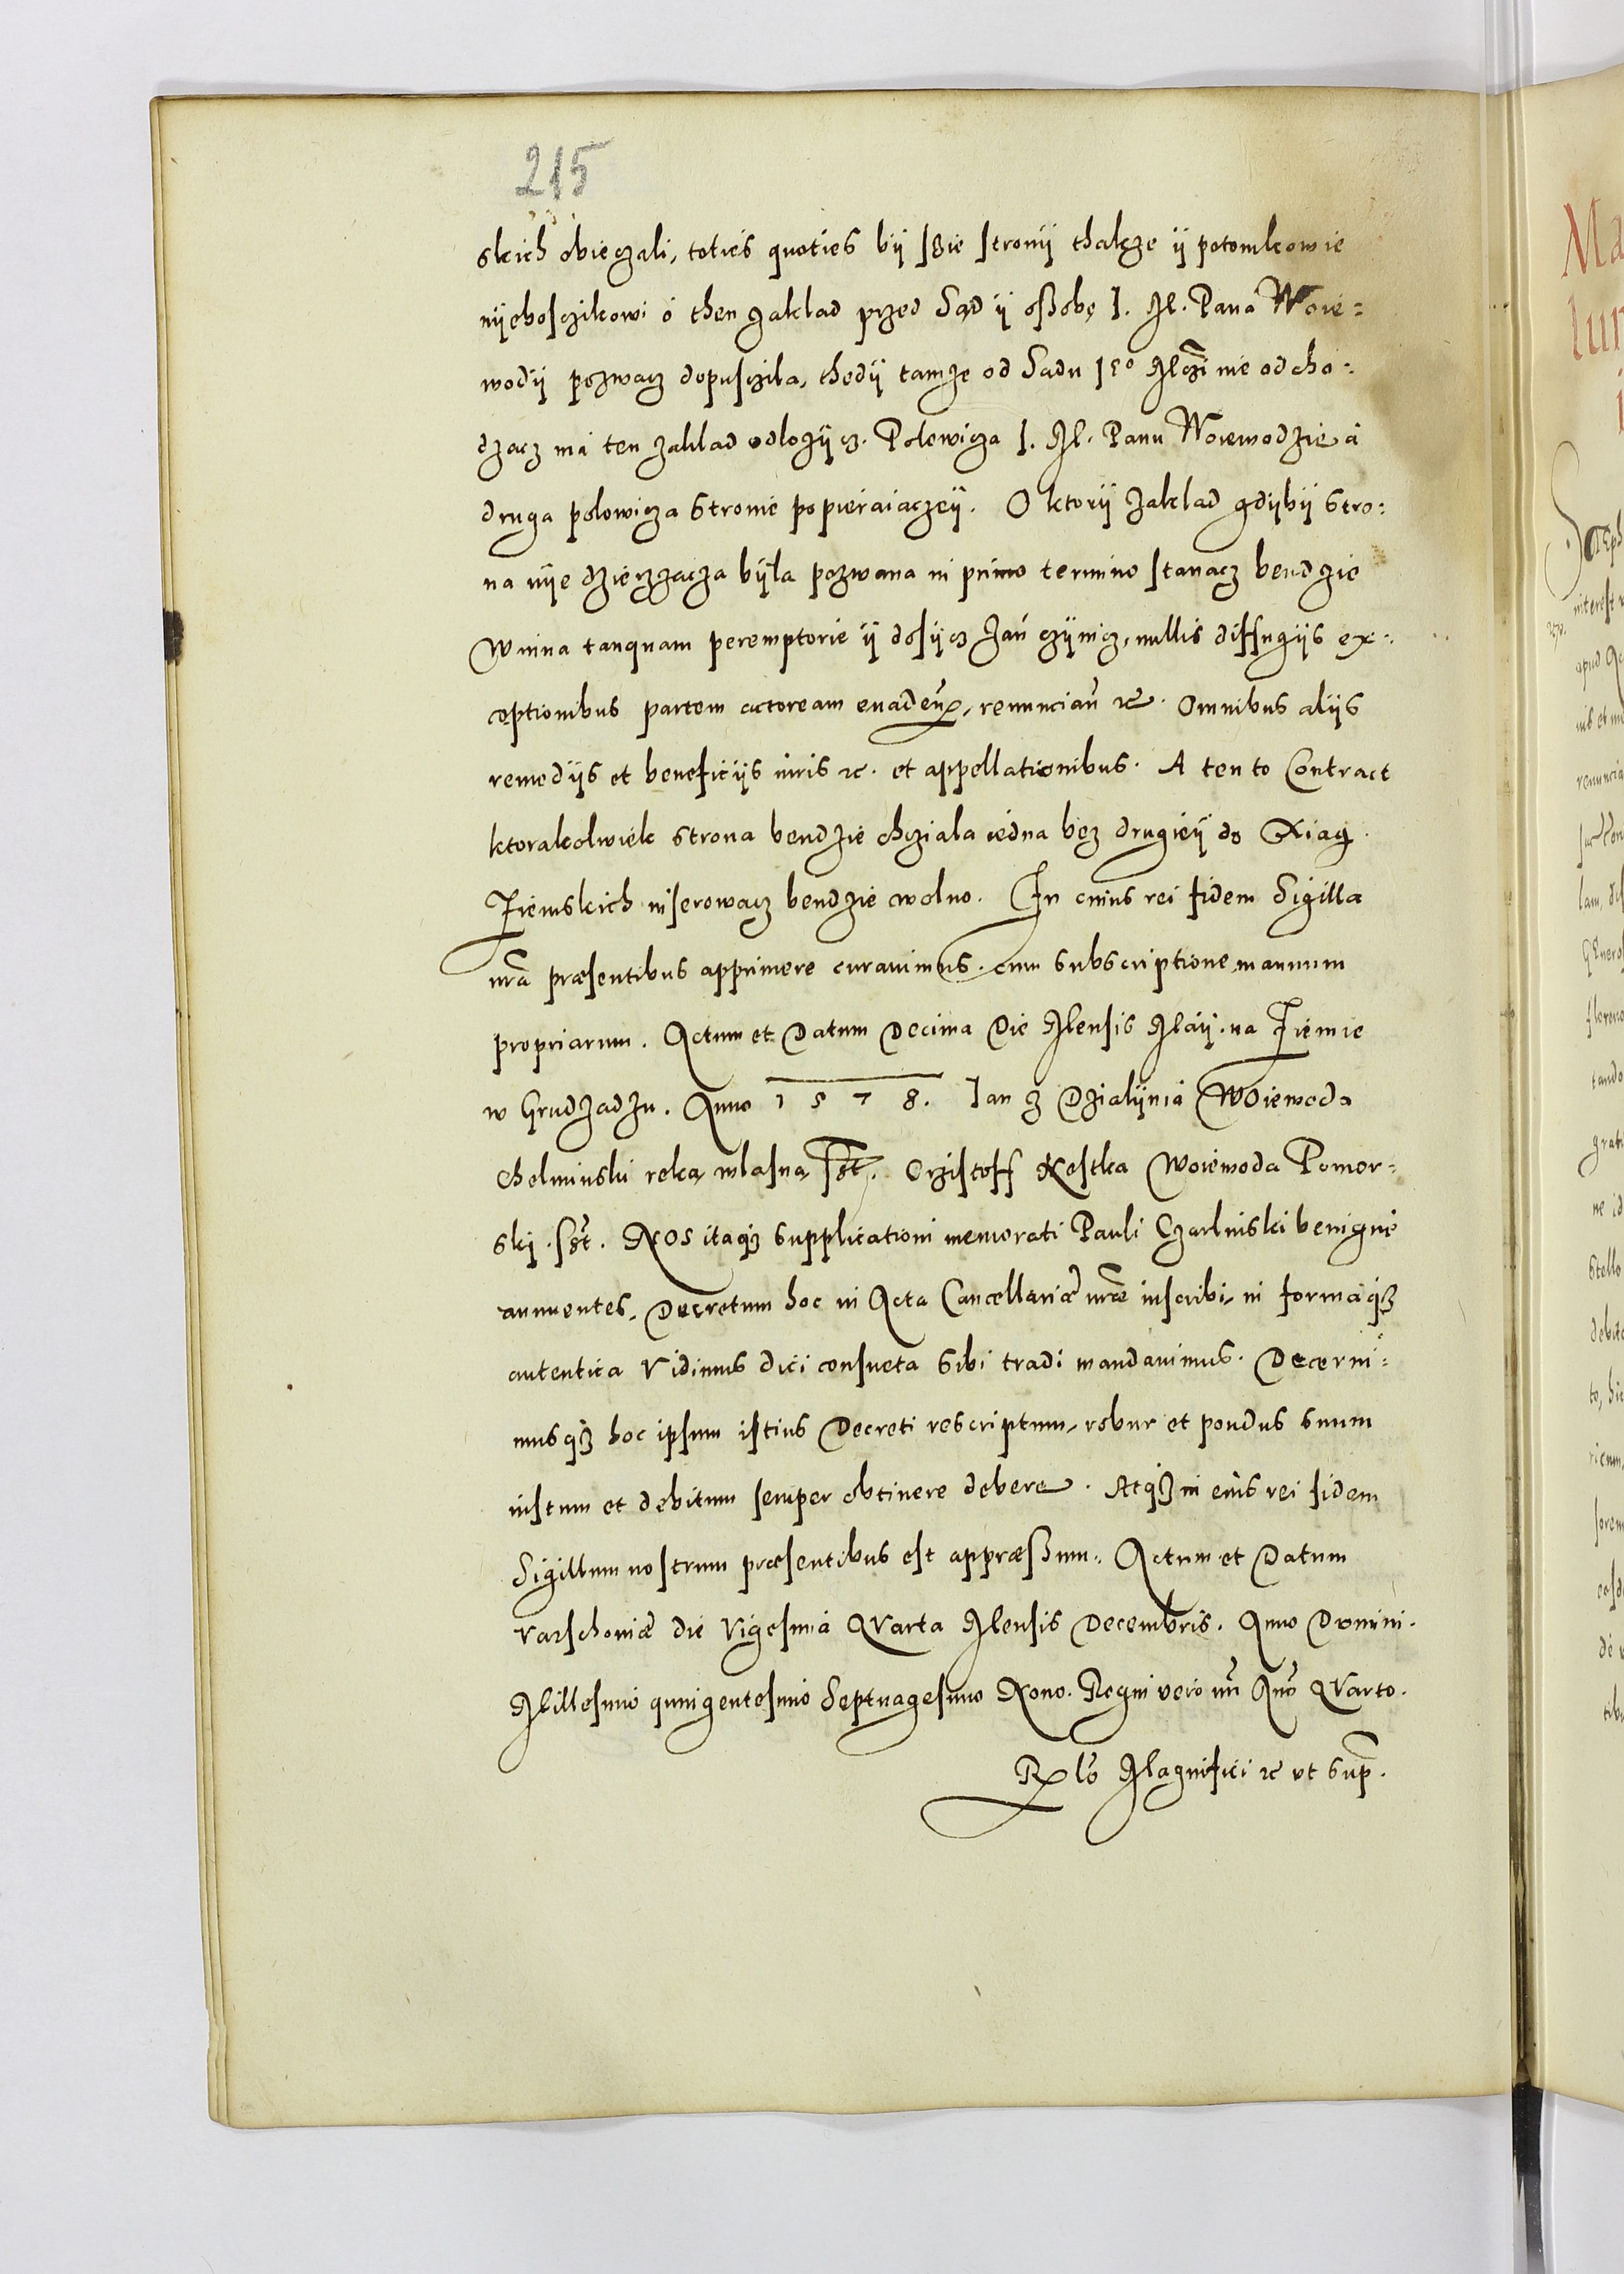 215
skich obieczali, toties quoties bÿ szie stronÿ thakze ÿ potomkowie
nÿebosczikowi ó then zaklad przed Sąd ÿ osobę J. M. Pana Woie=
wodÿ pozwacz dopusczila, thedÿ tamze od Sadu Je° Mczi nie odcho=
dzacz má ten zaklad odlozÿcz. Polowicza J. M. Panu Woiewodzie á
druga polowicza stronie popieraiaczeÿ. O ktorÿ zaklad gdÿbÿ stro=
na nÿe dzierzacza bÿla pozwana in primo termino stanacz bendzie
winna tanquam peremptorie ÿ dosÿcz zań czÿnicz, nullis diffugÿs ex=
ceptionibus partem actoream euadeń, renunciań &c. Omnibus alÿs
remedÿs et beneficÿs iuris &c. et appellationibus. A ten to Contract
ktorakolwiek strona bendzie chziala iedna bez drugieÿ do Xiag
Ziemskich inserowacz bendzie wolno. In cuius rei fidem Sigilla
nra præsentibus apprimere curauimus. cum subscriptione manuum
propriarum. Actum et Datum Decima Die Mensis Maÿ. na Ziemie
w Grudzadzu. Anno 1578. Jan z Dzialÿnia Woiewoda
chelminski reka wlasna sst. Crzistoff Kostka Woiewoda Pomor=
ski. sst. Nos itaq3 supplicationi memorati Pauli Czarlinski benigne
annuentes, Decretum hoc in Acta Cancellariæ nræ inscribi, in formaq3
autentica Vidimus dici consueta sibi tradi mandauimus. Decerni=
musq3 hoc ipsum istius Decreti rescriptum, robur et pondus suum
iustum et debitum semper obtinere debere. Atq3 in eius rei fidem
Sigillum nostrum præsentibus est appræssum. Actum et Datum
Varschouiæ die Vigesima Qvarta Mensis Decembris. Anno Domini.
Millesimo quingentesimo Septuagesimo Nono. Regni vero nri Anno Qvarto.
Rlo Magnifici &c vt sup.